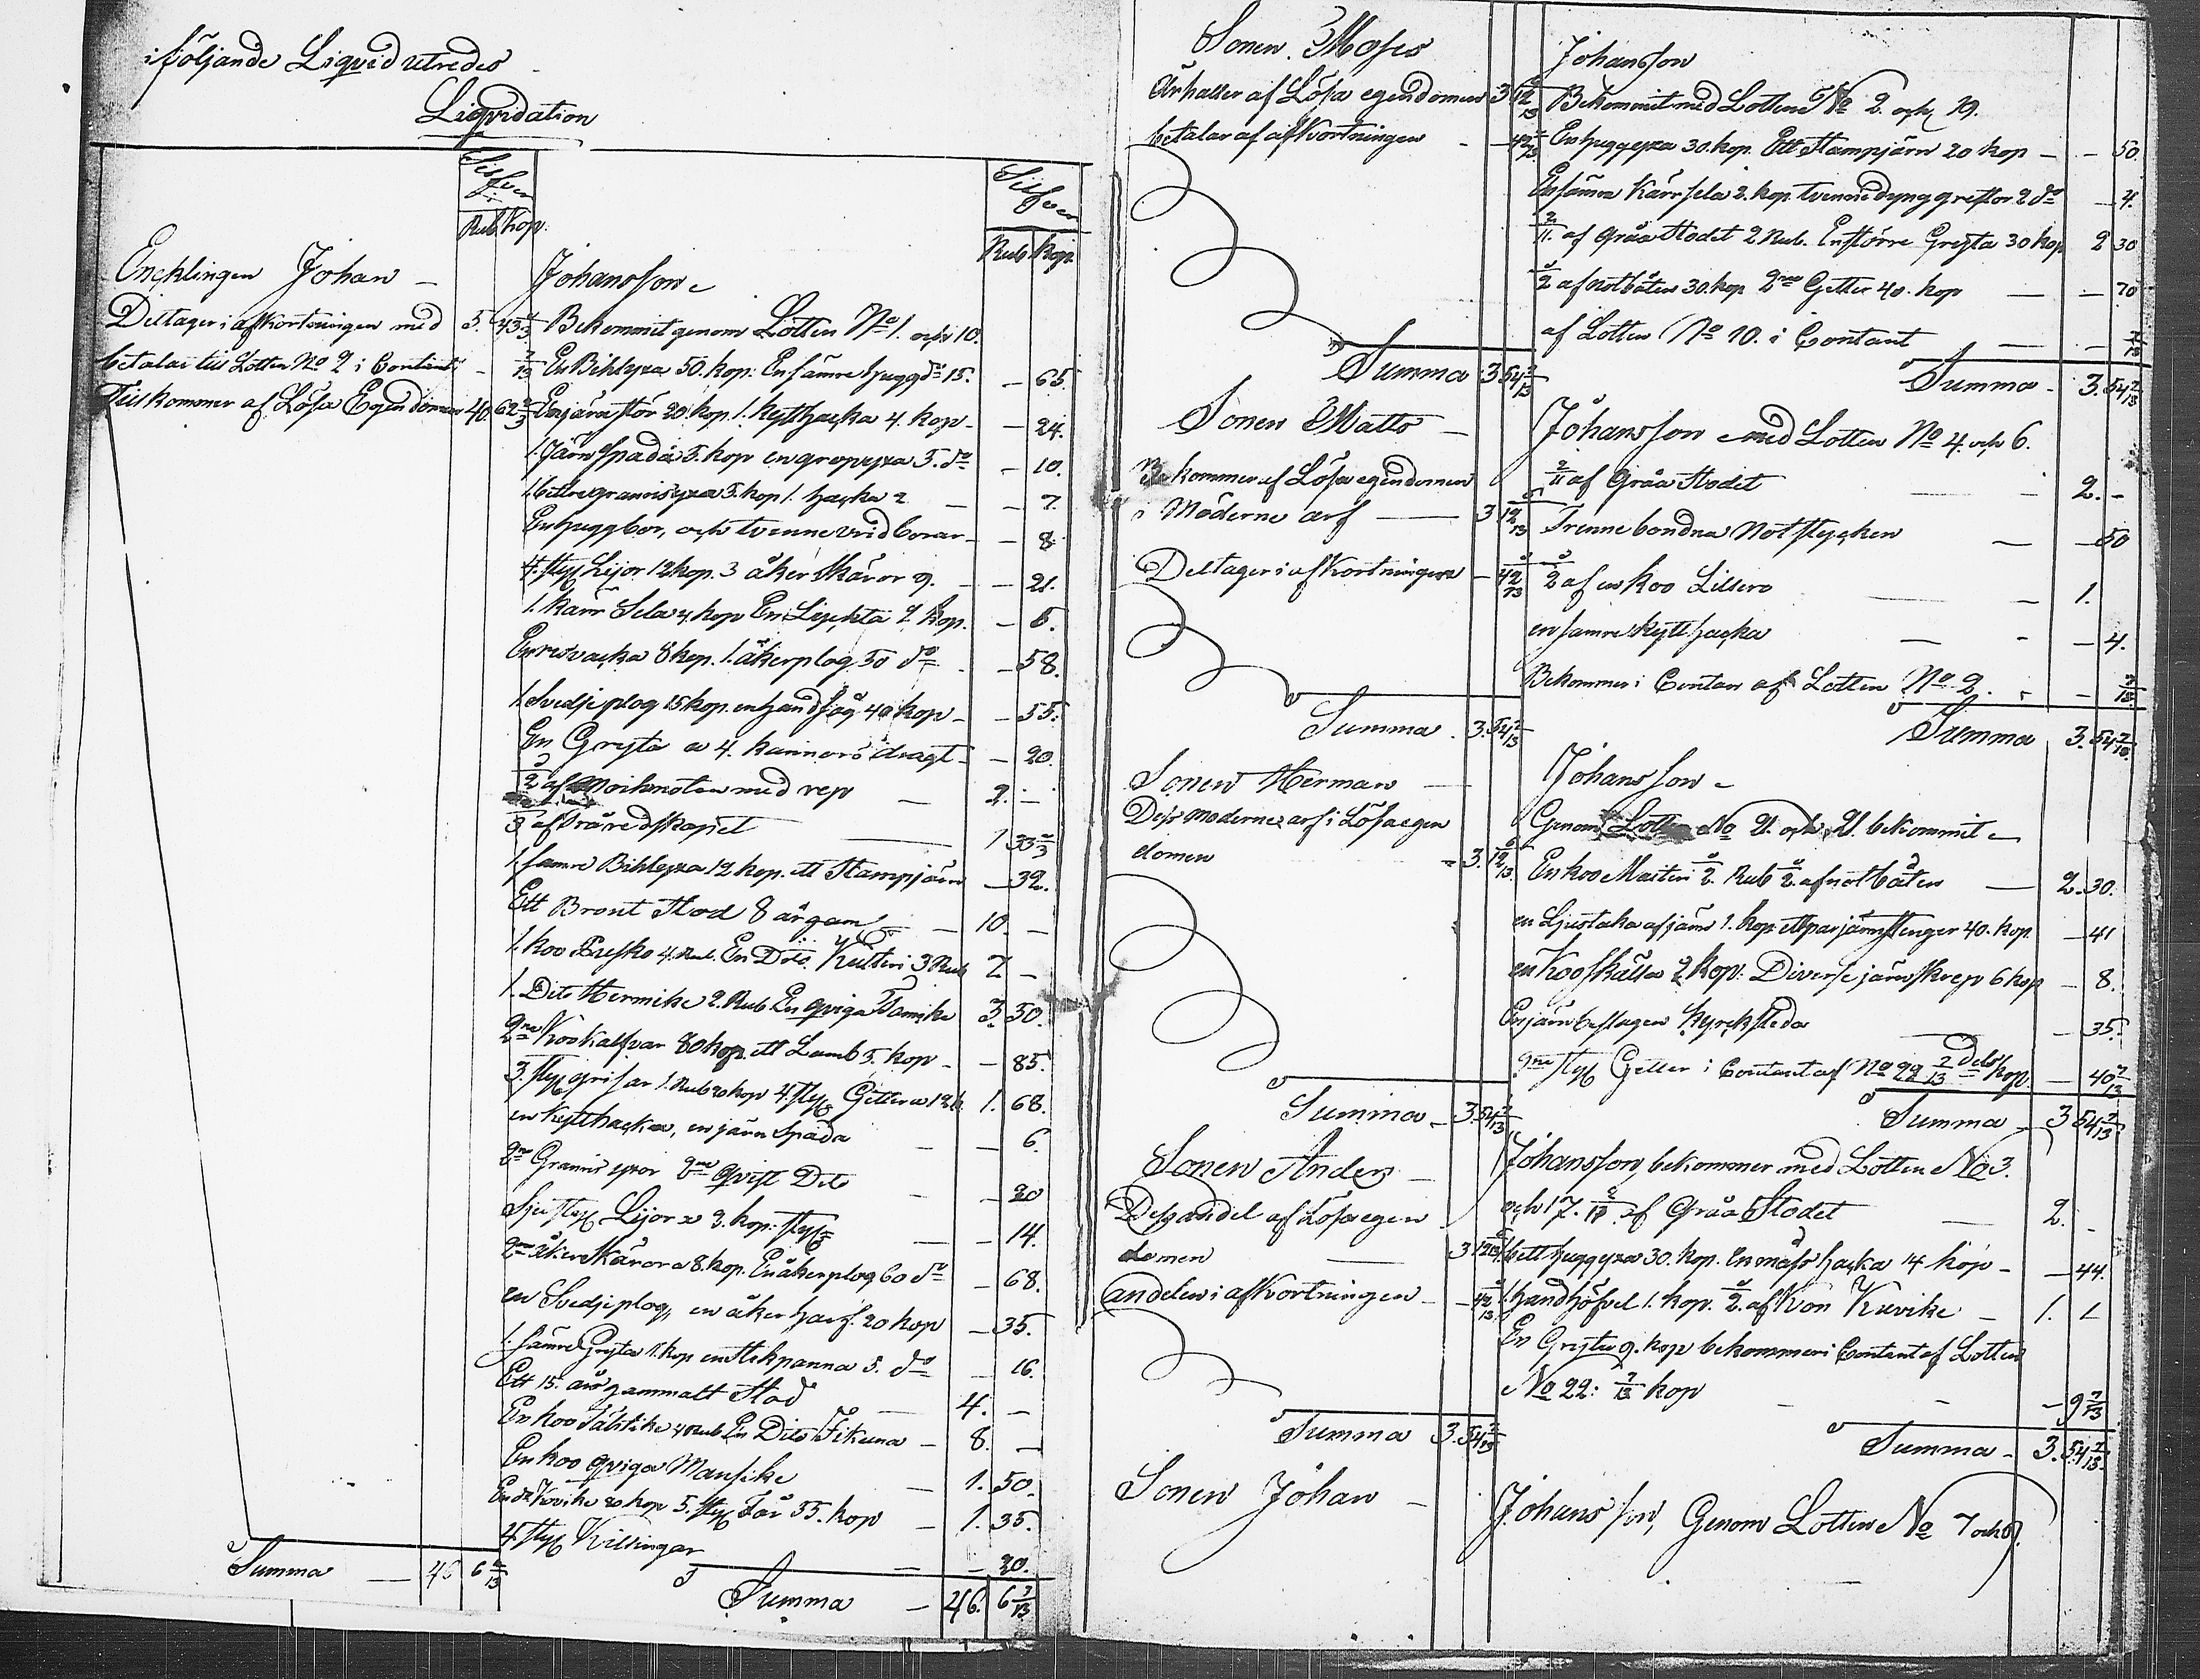 i följande Liqvid utredes
Liqvidation
Silfver
Rub Kop.
Silfver
Rub Kop.
Enchlingen Johan — Johansson
Deltager i afkortningen med 5. 43
betalar till Lotten No 2 i Contant — 7/13
Tillkommer af Lösa Egendomen 40. 62
Bekommit genom Lotten No 1. och 10.
En Bihlyxa 50. kop: En sämre hugg do 15. — 65.
En järn stör 20 kop 1. kytthacka 4. kop — 24.
1. Järn Spada 5. kop en gropyxa 5. do — 10.
kop 1. hacka 2 — 7.
En huggbor, och tvenne vridborar — 8
4. styck Lijor 12 kop. 3 åker skäror 9. — 21.
1. karr Sela 4 kop En Lyckta 2 kop. — 6.
8 kop. 1. åkerplog 50 do — 58.
1. Svedjeplog 15 kop. en handsåg 40 kop — 55.
En Gryta a 4. kannors dragt — 20.
1/2 af med rep — 2. —
1/3 af 1 33 1/3
1. samre Bihlyxa 12 kop. ett Stampjärn — 32.
Ett Brunt Stod 8 år gam — 10. —
1. koo 4. Rub. En Dito 3 Rub 7 —
1. Dito Hermike 2. Rub En qviga 3. 50.
2ne Koo kalfvar 80 kop. ett Lamb 5. kop — 85.
3. styck grisar 1. Rub 20 kop 4. styck Getter a 12 k. 1. 68.
en kytthacka, en järn Spada — 6.
2ne yxor 2ne Qvist Dito — 20
Sju styck Lijor a 2. kop: styck — 14.
2ne åker skäror a 8. kop. En åkerplog 60 do — 68.
en Svedjeplog, en åker harf. 20 kop — 35.
1. sämre Gryta 11. kop en stekpanna 5. do — 16.
Ett 15. års gammalt Stod 4. —
En koo 4 Rub En Dito Fikuna — 8. —
En koo qviga Mansike — 1. 50.
20 kop 5. styck Får 55. kop — 1. 35.
4 styck Killingar — 20.
Summa — 46 6 2/13 Summa — 46. 6 2/13
Sonen Moses Johansson
Ärhaller af Lösa egendomen 3 12 Bekommit med Lotten No 2. och 19.
betalar af afkortningen — 42 En huggyxa 30. kop. Ett Stampjärn 20 kop — — 50.
En sämre Kärrsela 2. kop. tvenne dynggreflor 2 do — 4.
2/11. af Gråa Stodet 2 Rub. En större Gryta 30 kop 2 30
1/2 af notbåten 30. kop 2ne Getter 40. kop — — 70
af Lotten No 10. i Contant — — 7/13
Summa 3 54 2/13 Summa — 3. 54 2/13
Sonen Matts — Johansson med Lotten No 4. och 6.
Bekommer af Lösa egendomen 2/11 af Gråa Stodet — 2. —
i Möderne arf — 3 12 Trenne bondna Notstycken — 50
Deltager i afkortningen — 42 1/2 af en koo Lillero — 1.
en samre kytthacka — — 4.
Bekommer i Contan af Lotten No 2. — 7/13
Summa 3. 54 2/13 Summa 3. 54 2/13
Sonen Herman — Johansson
Dess moderne arf i Lösa egen Genom Lotten No 21. och 21. bekommit
domen 3. 12 En koo Maiteri 2. Rub 1/2. af notbåten — 2. 30.
en Ljustaka af järn 1. kop. ett par järnstenger 40. kop. — 41
en Kooskälla 2 kop: Diverse järnskrep 6 kop — 8.
En järnbeslagen — 35.
2ne styck Getter i Contant af No 22 7/13 dels kop — 40 7/13
Summa — 3. 54 2/13 Summa — 3 54 2/13
Sonen Anders — Johansson, bekommer med Lotten No 3.
Dess andel af Lösa egen och 17. 2/11 af Gråa Stodet — 2. —
domen — 3. 12 1. bett huggyxa 30. kop. En hacka 14 kop — — 44.
andelen i afkortningen — 42 1. handhöfvel 1. kop. 1/2. af Kon Kuvike — 1. 1
En Gryta 9. kop bekommer i Contant af Lotten
No 22: 7/13 kop — 9 7/13
Summa 3. 54 2/13 Summa — 3. 54 2/13
Sonen Johan — Johansson, Genom Lotten No 7 och 8.